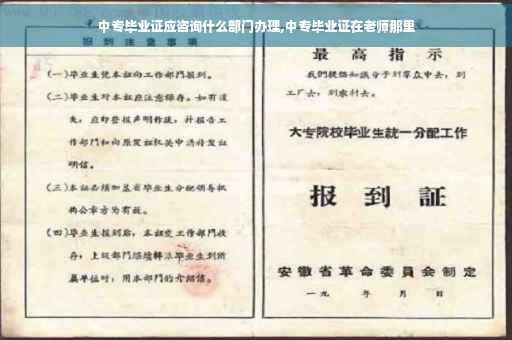 中专毕业证应咨询什么部门办理,中专毕业证在老师那里
报到注意事项
(一)毕业生凭本证向工作部門报到。
(二)毕业生对本证应注意保存。如有遗
失,应即登报声明作废,并报告工
作部門和向原发证机关申請补发证
明信。
(三)本证必须加盖省毕业生分配领导机
构公章方为有效。
(四)毕业生报到后,本证交工作部門收
存,上级部門
属单位时,用本部門的介绍信。
最高指示
我們提倡知識分子到羣众中去,到
工厂去,到农村去。
大专院校毕业生統一分配工作
报到証
安徽省革命委員会制定
一九 年 月 日